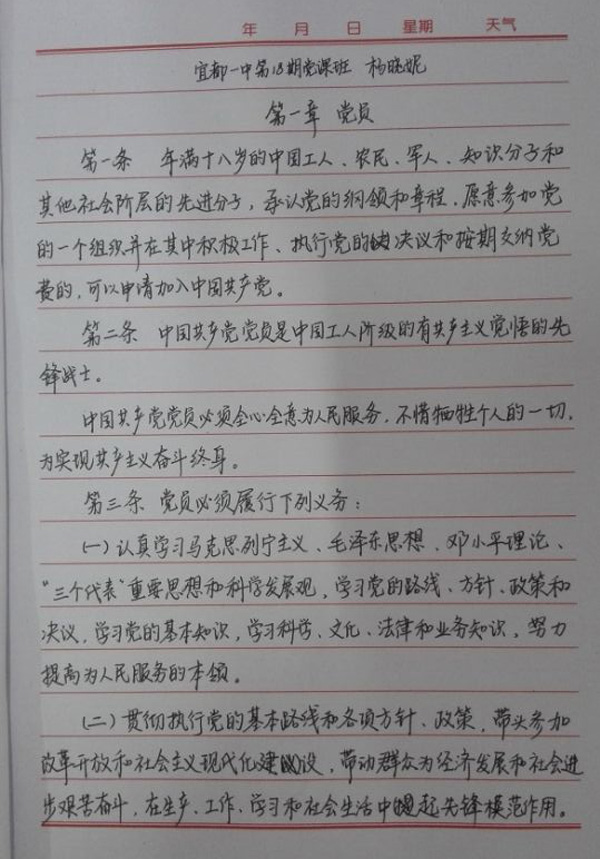 年 月 日 星期 天气
宜都一中第18期党课班 杨晓妮
第一章 党员
第一条 年满十八岁的中国工人、农民、军人、知识分子和
其他社会阶层的先进分子，承认党的纲领和章程，愿意参加党
的一个组织并在其中积极工作、执行党的决议和按期交纳党
费的，可以申请加入中国共产党。
第二条 中国共产党党员是中国工人阶级的有共产主义觉悟的先
锋战士。
中国共产党党员必须全心全意为人民服务，不惜牺牲个人的一切，
为实现共产主义奋斗终身。
第三条 党员必须履行下列义务：
(一)认真学习马克思列宁主义、毛泽东思想、邓小平理论、
“三个代表”重要思想和科学发展观，学习党的路线、方针、政策和
决议，学习党的基本知识，学习科学、文化、法律和业务知识，努力
提高为人民服务的本领。
(二)贯彻执行党的基本路线和各项方针、政策，带头参加
改革开放和社会主义现代化建设，带动群众为经济发展和社会进
步艰苦奋斗，在生产、工作、学习和社会生活中起先锋模范作用。